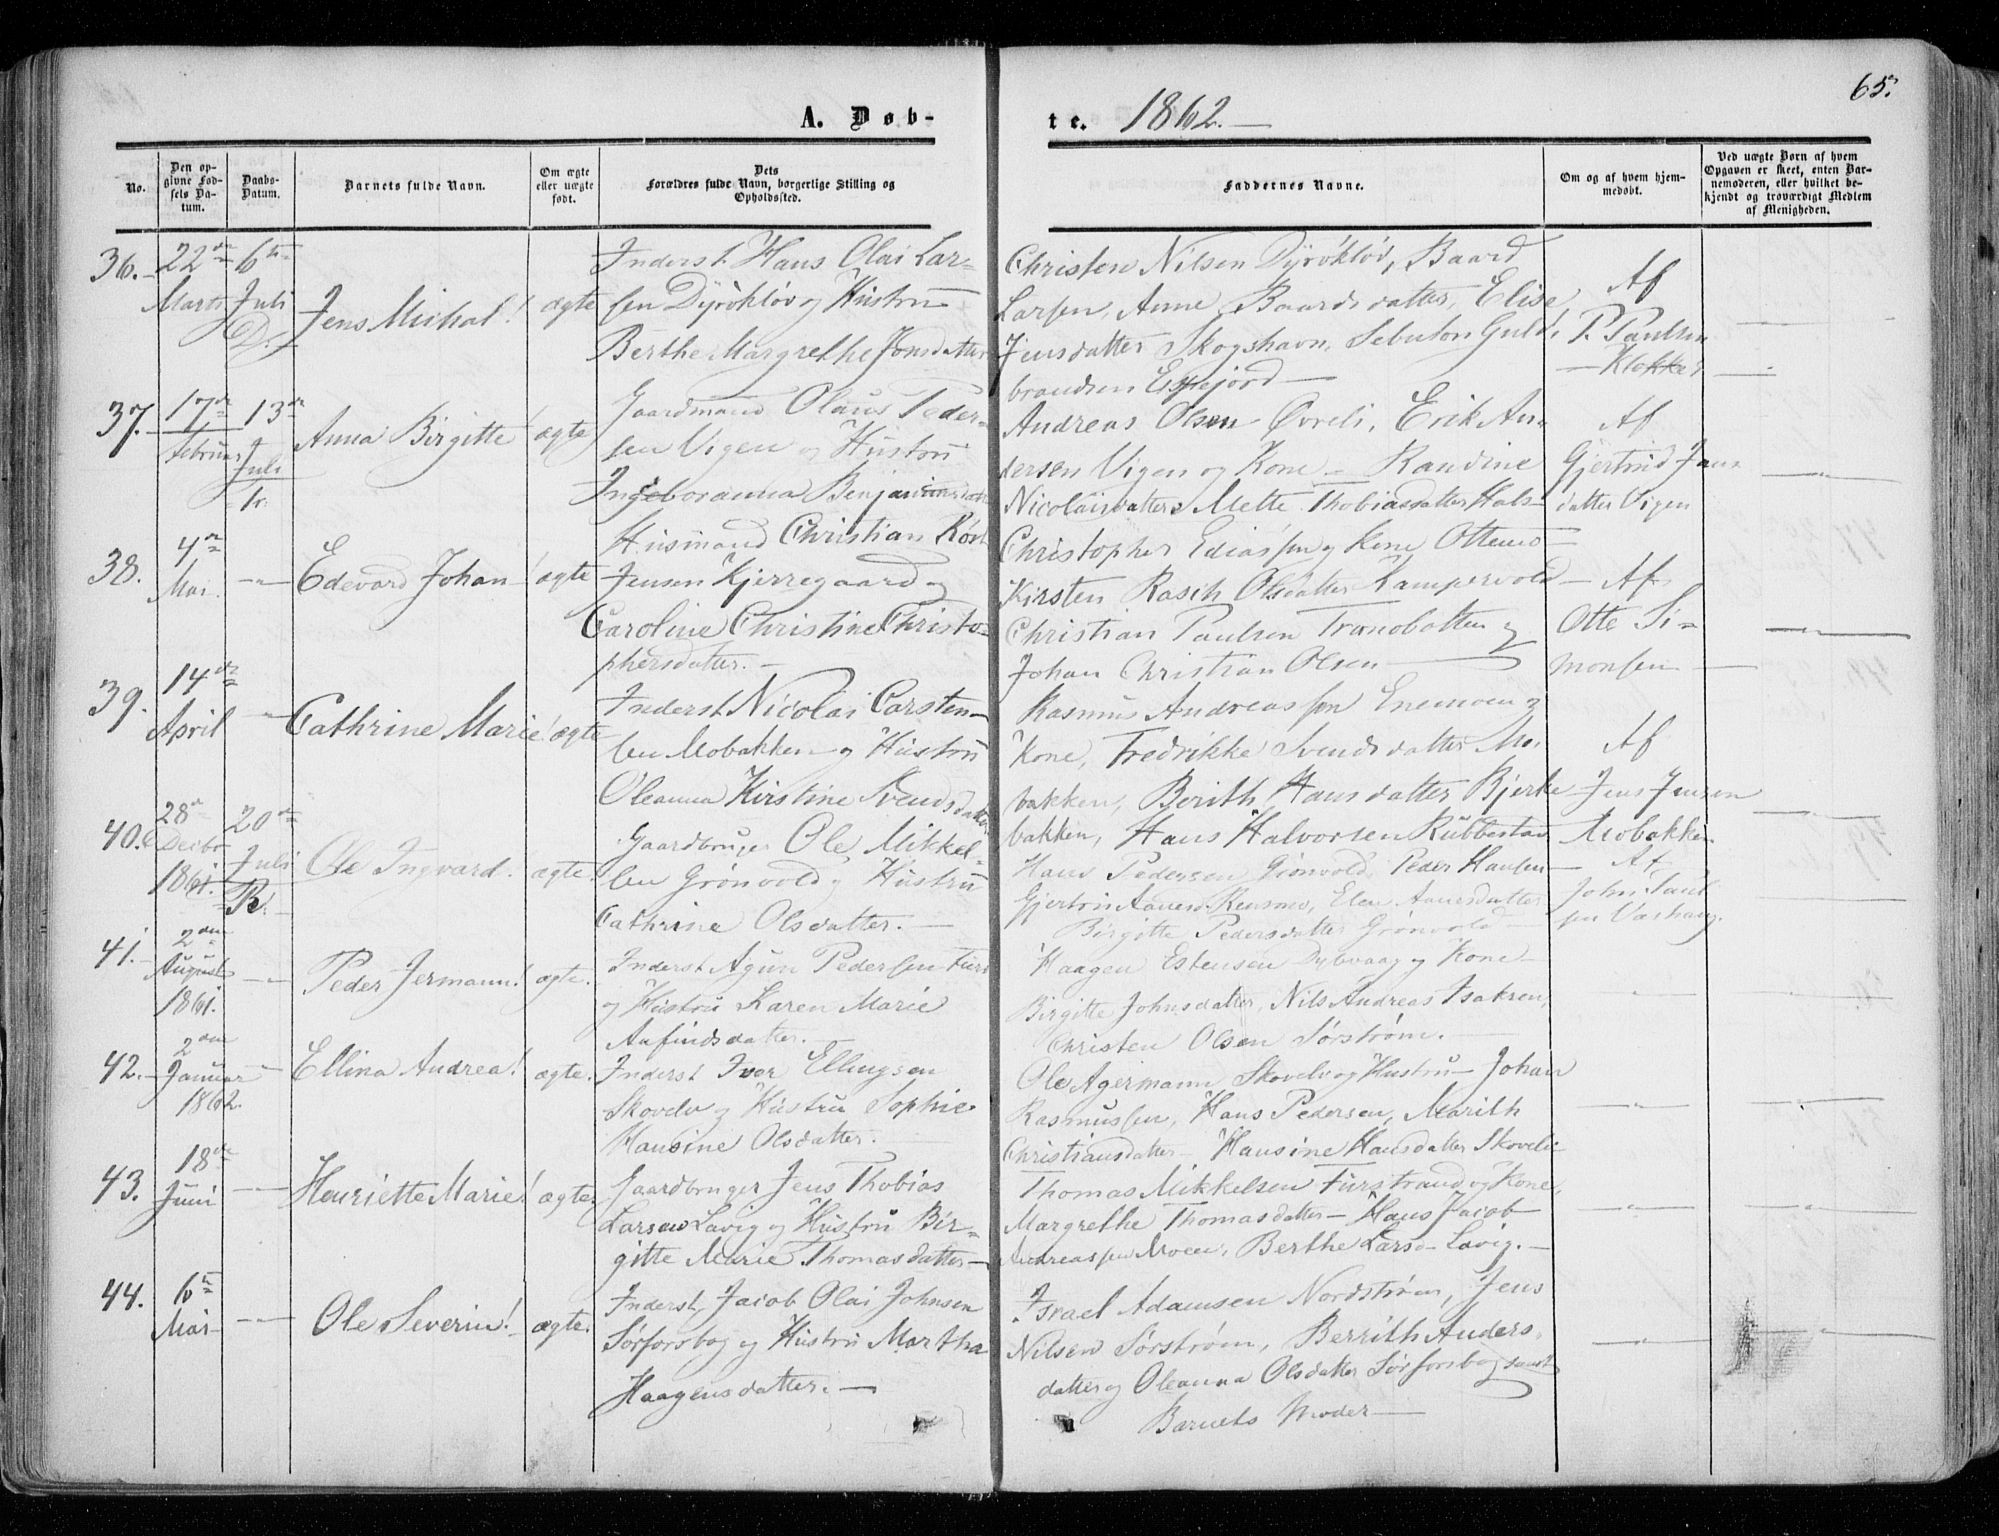 65.
A. Døb-
te. 1862.
No.
Den opgivne Fødsels Datum.
Daabs-Datum.
Barnets fulde Navn.
Om ægte eller uægte født.
Dets Forældres fulde Navn, borgerlige Stilling og Opholdssted.
Faddernes Navne.
Om og af hvem hjemmedøbt.
Ved uægte Børn af hvem Opgaven er skeet, enten Barnemoderen, eller hvilket bekjendt og troværdigt Medlem af Menigheden.
36.
22de Marts
6te Juli D.
Jens Michal!
ægte
Inderst Hans Olai Lar-
sen Dyrøkløv og Hustru
Berthe Margrethe Jonsdatter
Christen Nilsen Dyrökløv, Baard
Larsen, Anne Baardsdatter, Elise
Jensdatter Skogshavn, Guld-
brandsen Espejord
Af
P. Paulsen
Klokker
37.
17de Februar
13de Juli
Anna Birgitte
ægte
Gaardmand Olaus Peder-
sen Vigen og Hustru
Ingeboranna Benjaminsdatter
Andreas Olsen Øvreli, Erik An-
dersen Vigen og Kone - Randine
Nicolaisdatter Mette Thobiasdatter Hals
Af
Gjertrud Jans
datter Vigen
38.
4de Mai.
Edevard Johan
ægte
Husmand Christian
Jensen Kjerregaard og
Caroline Christine Christo-
phersdatter.
Christopher Ediassen og Kone
Kirsten Rasch Olsdatter Kampevold
Christian Paulsen Tranobotten og
Johan Christian Olsen
Af
Otte Si-
monsen
39.
14de April
Cathrine Marie!
ægte
Inderst Nicolai Carsten-
sen Mobakken og Hustru
Oleanna Kirstine Svendsdatter
Rasmus Andreassen Enemoen og
Kone, Fredrikke Svendsdatter Mo-
bakken, Berith Hansdatter Bjerke-
bakken, Hans Halvorsen Rubbestad
Af
Jens Jensen
Mobakken
40.
28de Decbr 1861.
20de Juli
Ole Ingvard.
ægte.
Gaardbruger Ole Mikkel-
sen Grønvold og Hustru
Cathrine Olsdatter.
Hans Pedersen Grönvold, Peder Hansen
Elen
Birgitte Pedersdatter Grønvold
Af
John Paul
sen
41.
2den August 1861.
Peder Jermann!
ægte.
Inderst Agun Pedersen
og Hustru Karen Marie
Anfindsdatter.
Haagen Estensen Dybvaag og Kone
Birgitte Johnsdatter, Nils Andreas Isaksen,
Christen Olsen Sørstrøm.
42.
2den Januar 1862.
Ellina Andrea!
ægte.
Inderst Iver Ellingsen
Skovelv og Hustru Sophie
Hansine Olsdatter.
Ole Agermann Skovelv og Hustru - Johan
Rasmussen, Hans Pedersen, Marith
Christiansdatter - Hansine Hansdatter Skovelv
43.
18de Juni
Henriette Marie!
ægte
Gaardbruger Jens Thobias
Larsen Lavig og Hustru Bir-
gitte Marie Thomasdatter
Thomas Mikkelsen Furstrand og Kone,
Margrethe Thomasdatter - Hans Jacob
Andreassen Moen, Berthe Larsd. Lavig.
44.
6te Mai
Ole Severin!
ægte.
Inderst Jacob Olai Johnsen
Sørforsbog og Hustru Martha
Haagensdatter.
Israel Adamsen Nordstrøm, Jens
Nilsen Sørstrøm, Berrith Anders-
datter og Oleanna Olsdatter Sørforsbog samt
Barnets Moder